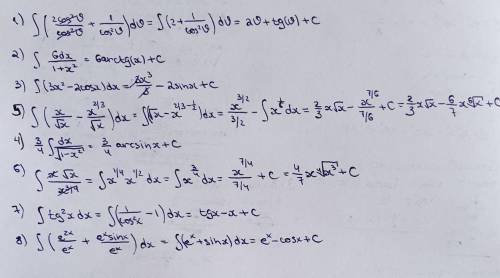 1) ∫(2cos²υ/cos²υ + 1/cos²υ)dυ = ∫(2 + 1/cos²υ)dυ = 2υ + tg(υ) + C
2) ∫ 6dx/(1+x²) = 6arctg(x) + C
3) ∫(3x² - 2cosx)dx = 3x³/3 - 2sinx + C
5) ∫(x/√x - x^(2/3)/√x)dx = ∫(√x - x^(2/3 - 1/2))dx = x^(3/2)/(3/2) - ∫x^(1/6)dx = 2/3 x√x - x^(7/6)/(7/6) + C = 2/3 x√x - 6/7 x ⁶√x + C
4) 3/4 ∫ dx/√(1-x²) = 3/4 arcsinx + C
6) = ∫x^(1/4) x^(1/2) dx = ∫x^(3/4) dx = x^(7/4)/(7/4) + C = 4/7 x ⁴√x³ + C
7) ∫tg²x dx = ∫(1/cos²x - 1)dx = tgx - x + C
8) ∫(e^(2x)/e^x + e^x sinx/e^x)dx = ∫(e^x + sinx)dx = e^x - cosx + C